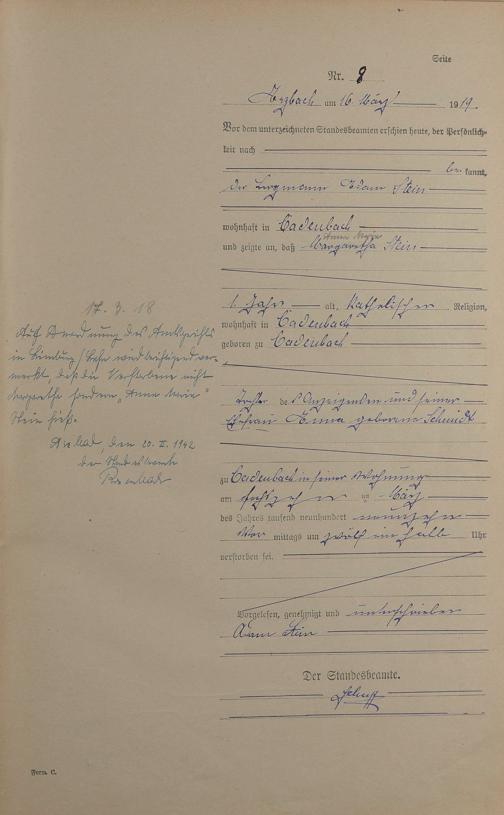 Seite
Nr. 8
Arzbach am 16 März 1919.
Vor dem unterzeichneten Standesbeamten erschien heute, der Persönlich-
keit nach
be kannt,
der Bergmann Adam Stein
wohnhaft in Cadenbach
Anna Maria
und zeigte an, daß Margaretha Stein
1 Jahr alt, Katholischer Religion,
wohnhaft in Cadenbach
geboren zu Cadenbach
Tochter des Anzeigenden und seiner
Ehefrau Anna geborene Schmidt
zu Cadenbach in seiner Wohnung
am sechszehn ten März
des Jahres tausend neunhundert neunzehn
Vor mittags um zwölf ein halb Uhr
verstorben sei.
Vorgelesen, genehmigt und unterschrieben
Adam Stein
Der Standesbeamte.
17. 3. 18
Auf Anordnung des Amtsgerichts
in Limburg / Lahn wird berichtigend ver-
merkt, daß die Verstorbene nicht
Margaretha sondern "Anna Maria"
Stein hieß.
den 20. II. 1942
der Standesbeamte
Form. C.